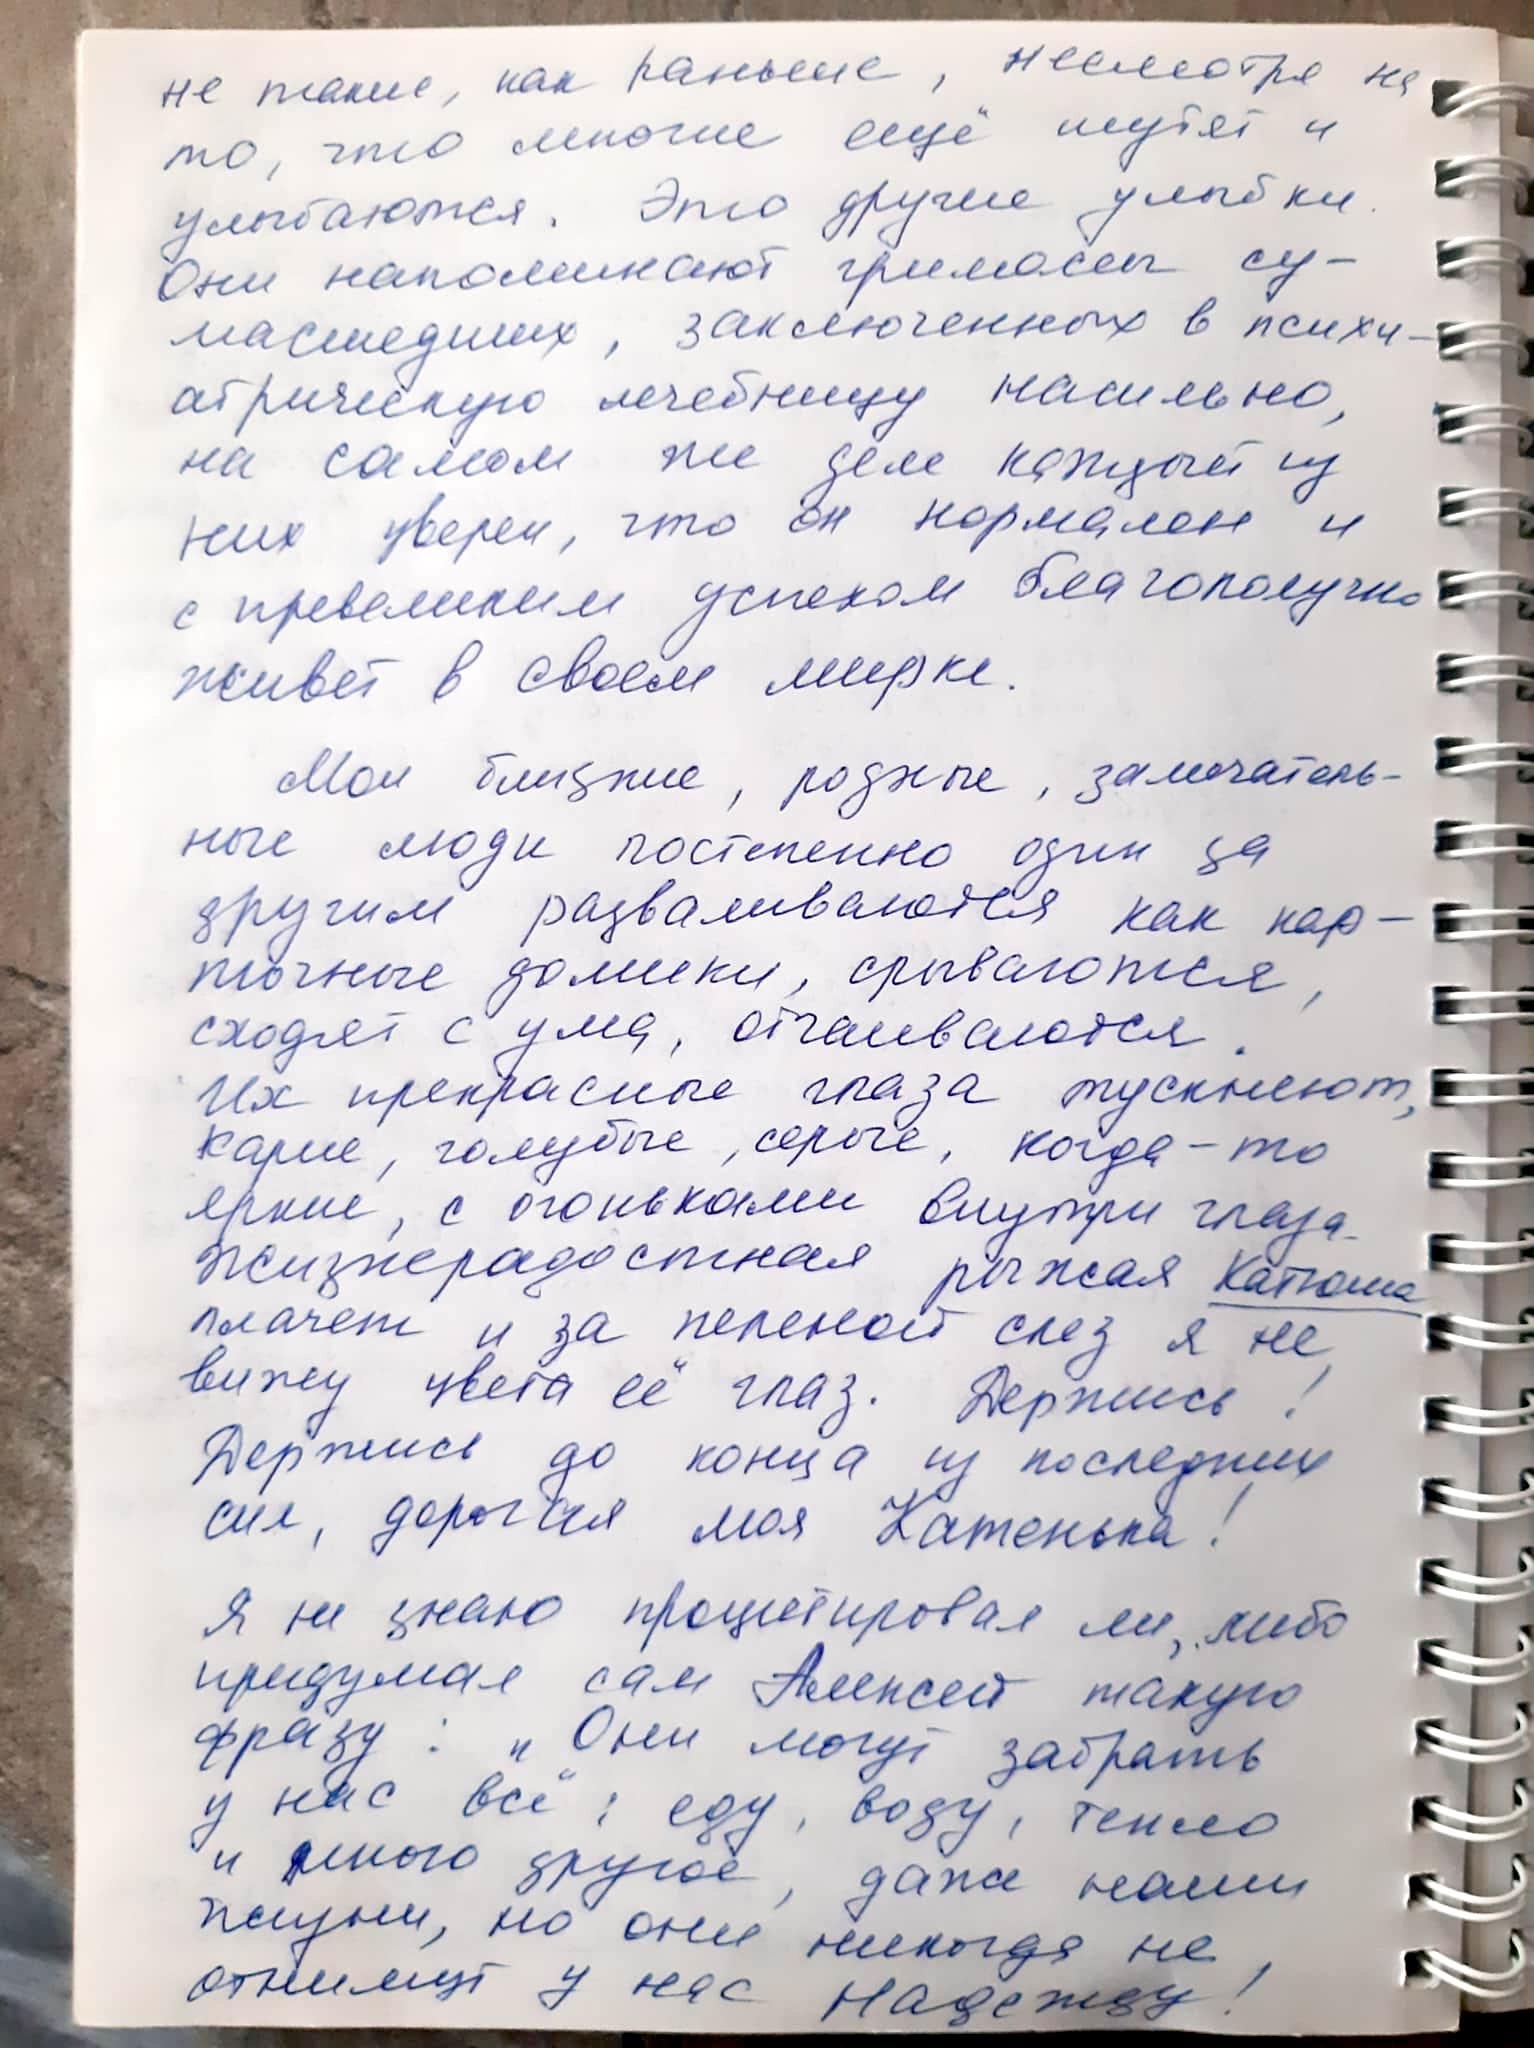 не такие, как раньше, несмотря на
то, что многие ещё шутят и
улыбаются. Это другие улыбки.
Они напоминают гримасы су-
масшедших, заключенных в психи-
атрическую лечебницу насильно,
на самом же деле каждый из
них уверен, что он нормален и
с превеликим успехом благополучно
живёт в своем мирке.
Мои близкие, родные, замечатель-
ные люди постепенно один за
другим разваливаются как кар-
точные домики, срываются,
сходят с ума, отчаиваются.
Их прекрасные глаза тускнеют,
карие, голубые, серые, когда-то
яркие, с огоньками внутри глаза.
Жизнерадостная рыжая Катюша
плачет и за пеленой слез я не
вижу цвета её глаз. Держись!
Держись до конца из последних
сил, дорогая моя Катенька!
Я не знаю процитировал ли, либо
придумал сам Алексей такую
фразу: „Они могут забрать
у нас всё": еду, воду, тепло
и много другое, даже наши
жизни, но они никогда не
отнимут у нас Надежду!